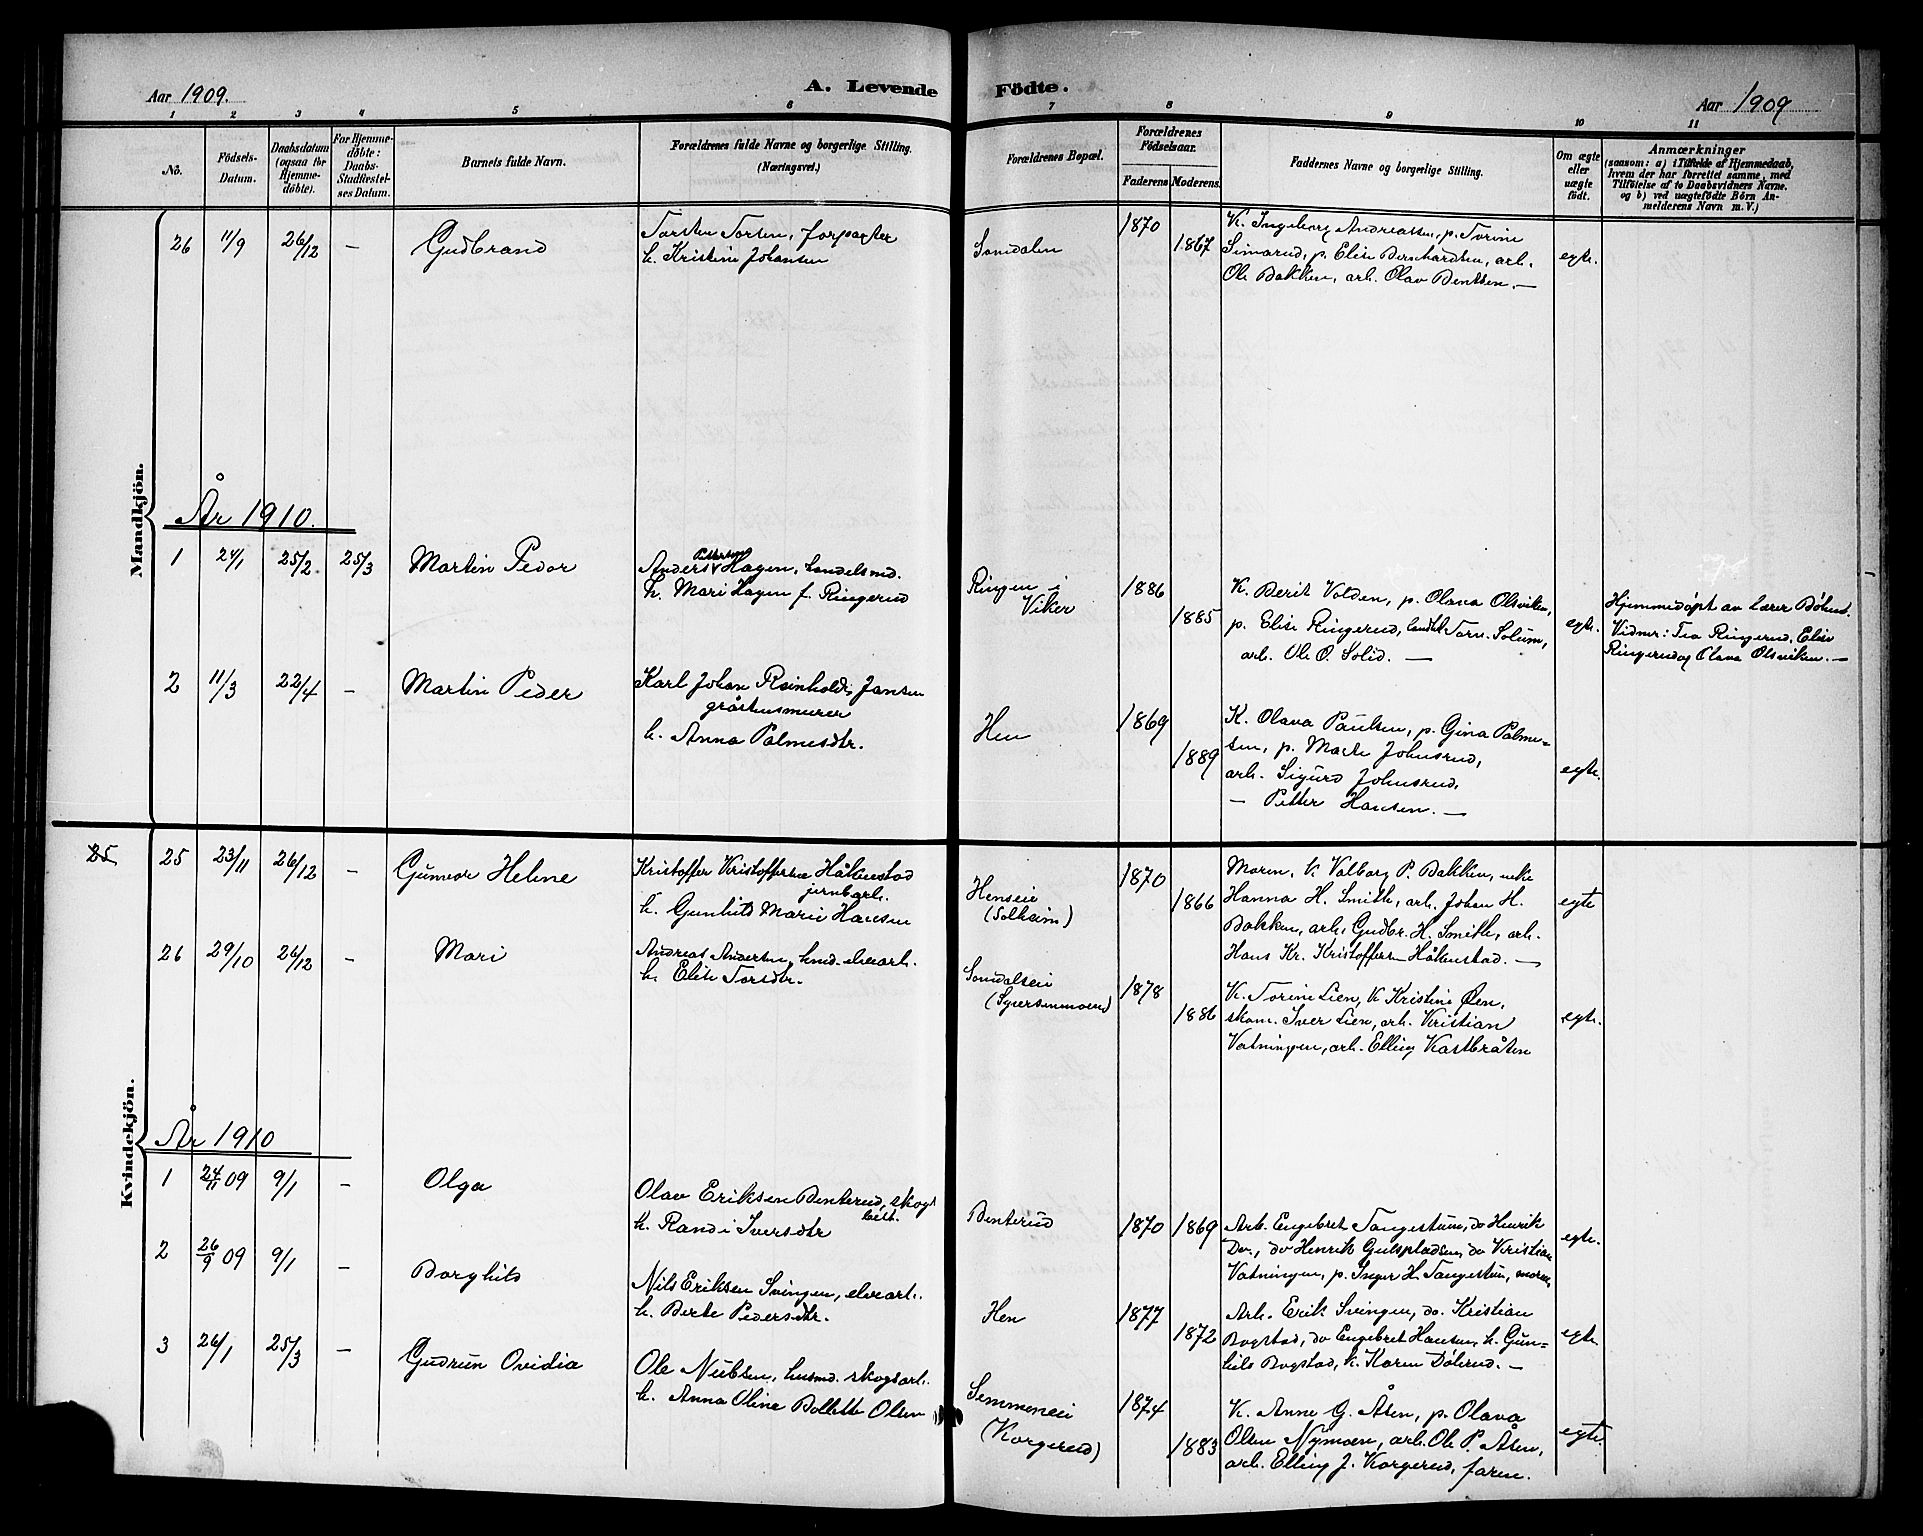 Aar 1909.
A. Levende Födte.
Aar 1909
1 2 3 4 5 6 7 8 9 10 11
No.
Födsels-Datum.
Daabsdatum (ogsaa for Hjemme-döbte).
For Hjemme-döbte: Daabs-Stadfæstel-ses Datum.
Barnets fulde Navn.
Forældrenes fulde Navne og borgerlige Stilling. (Næringsvei.)
Forældrenes Bopæl.
Forældrenes Födselsaar.
Faderens Moderens
Faddernes Navne og borgerlige Stilling.
Om ægte eller uægte født.
Anmærkninger
(saasom: a) i Tilfælde af Hjemmedaab,
hvem der har forrettet samme, med
Tilföielse af to Daabsvidners Navne.
og b) ved uægtefödte Börn An-
melderens Navn m. V.)
Mandkjön.
26 11/9 26/12 — Gudbrand
Torsten Torsen, forpagter
h. Kristine Johansen
Somdalen
1870 1867
K. Ingeborg Andreassen, p. Torine
Simarud, p. Elise Bernhardsen, arb.
Ole Bakken, arb. Olav Bentsen. —
egte.
År 1910.
1 24/1 25/2 25/3 Martin Peder
Anders Pettersen Hagen, handelsmd.
h. Mari Hagen f. Ringerud
Ringen i
Viker
1886 1885
K. Berit Volden, p. Olava Olsviken,
p. Elise Ringerud, landh. Torv. Solum,
arb. Ole O. Solid. —
egte.
Hjemmedøpt av lærer Døhust.
Vidner: Tea Ringerud, Elise
Ringerud og Olava Olsviken. —
2 11/3 22/4 — Martin Peder
Karl Johan Reinholds Jansen
gråstensmurer
h. Anna Palmesdtr.
Hen
1869 1889
K. Olava Paulsen, p. Gina Palme-
sen, p. Marte Johnsrud,
arb. Sigurd Johnsrud,
— Petter Hansen. —
egte.
Kvindekjön.
25 25 23/11 26/12 — Gunvor Helene
Kristoffer Kristoffersen Håkenstad
jernbarb.
h. Gunhild Marie Hansen
Henseie
(Solheim)
1870 1866
Moren, k. Valborg P. Bakken, enke
Hanna H. Smith, arb. Johan H.
Bakken, arb. Gudbr. H. Smith, arb.
Hans Kr. Kristoffers– Håkenstad. —
egte
26 29/10 26/12 — Mari
Andreas Andersen, husmd. elvearb.
h. Elise Torsdtr.
Somdalseie
(Sjversenmoen)
1878 1886
K. Torine Lien, k. Kristine Øen,
skom. Iver Lien, arb. Kristian
Vatningen, arb. Elling Kastbråten
egte.
År 1910
1 24/11 09 9/1 — Olga
Olav Eriksen Benterud, skog-
best.
h. Randi Iversdtr
Benterud
1870 1869
Arb. Engebret Tangestuen, do Henrik
Do., do Henrik Gulspladsen, do Kristian
Vatningen, p. Inger H. Tangestuen, moren
egte.
2 26/9 09 9/1 — Borghild
Nils Eriksen Svingen, elvearb.
h. Berte Pedersdtr.
Hen
1877 1872
Arb. Erik Svingen, do. Kristian
Bogstad, do Engebret Hansen, k. Gun-
hild Bogstad, k. Karen Dølerud. —
egte.
3 26/1 25/3 — Gudrun Ovidia
Ole Nielsen, husmd. skogsarb.
h. Anna Oline Bollette Olsen
Semmeneie
(Korgerud)
1874 1883
K. Anne G. Åsen, p. Olava
Olsen Nymoen, arb. Ole P. Åsen,
arb. Elling J. Korgerud, faren.
egte.